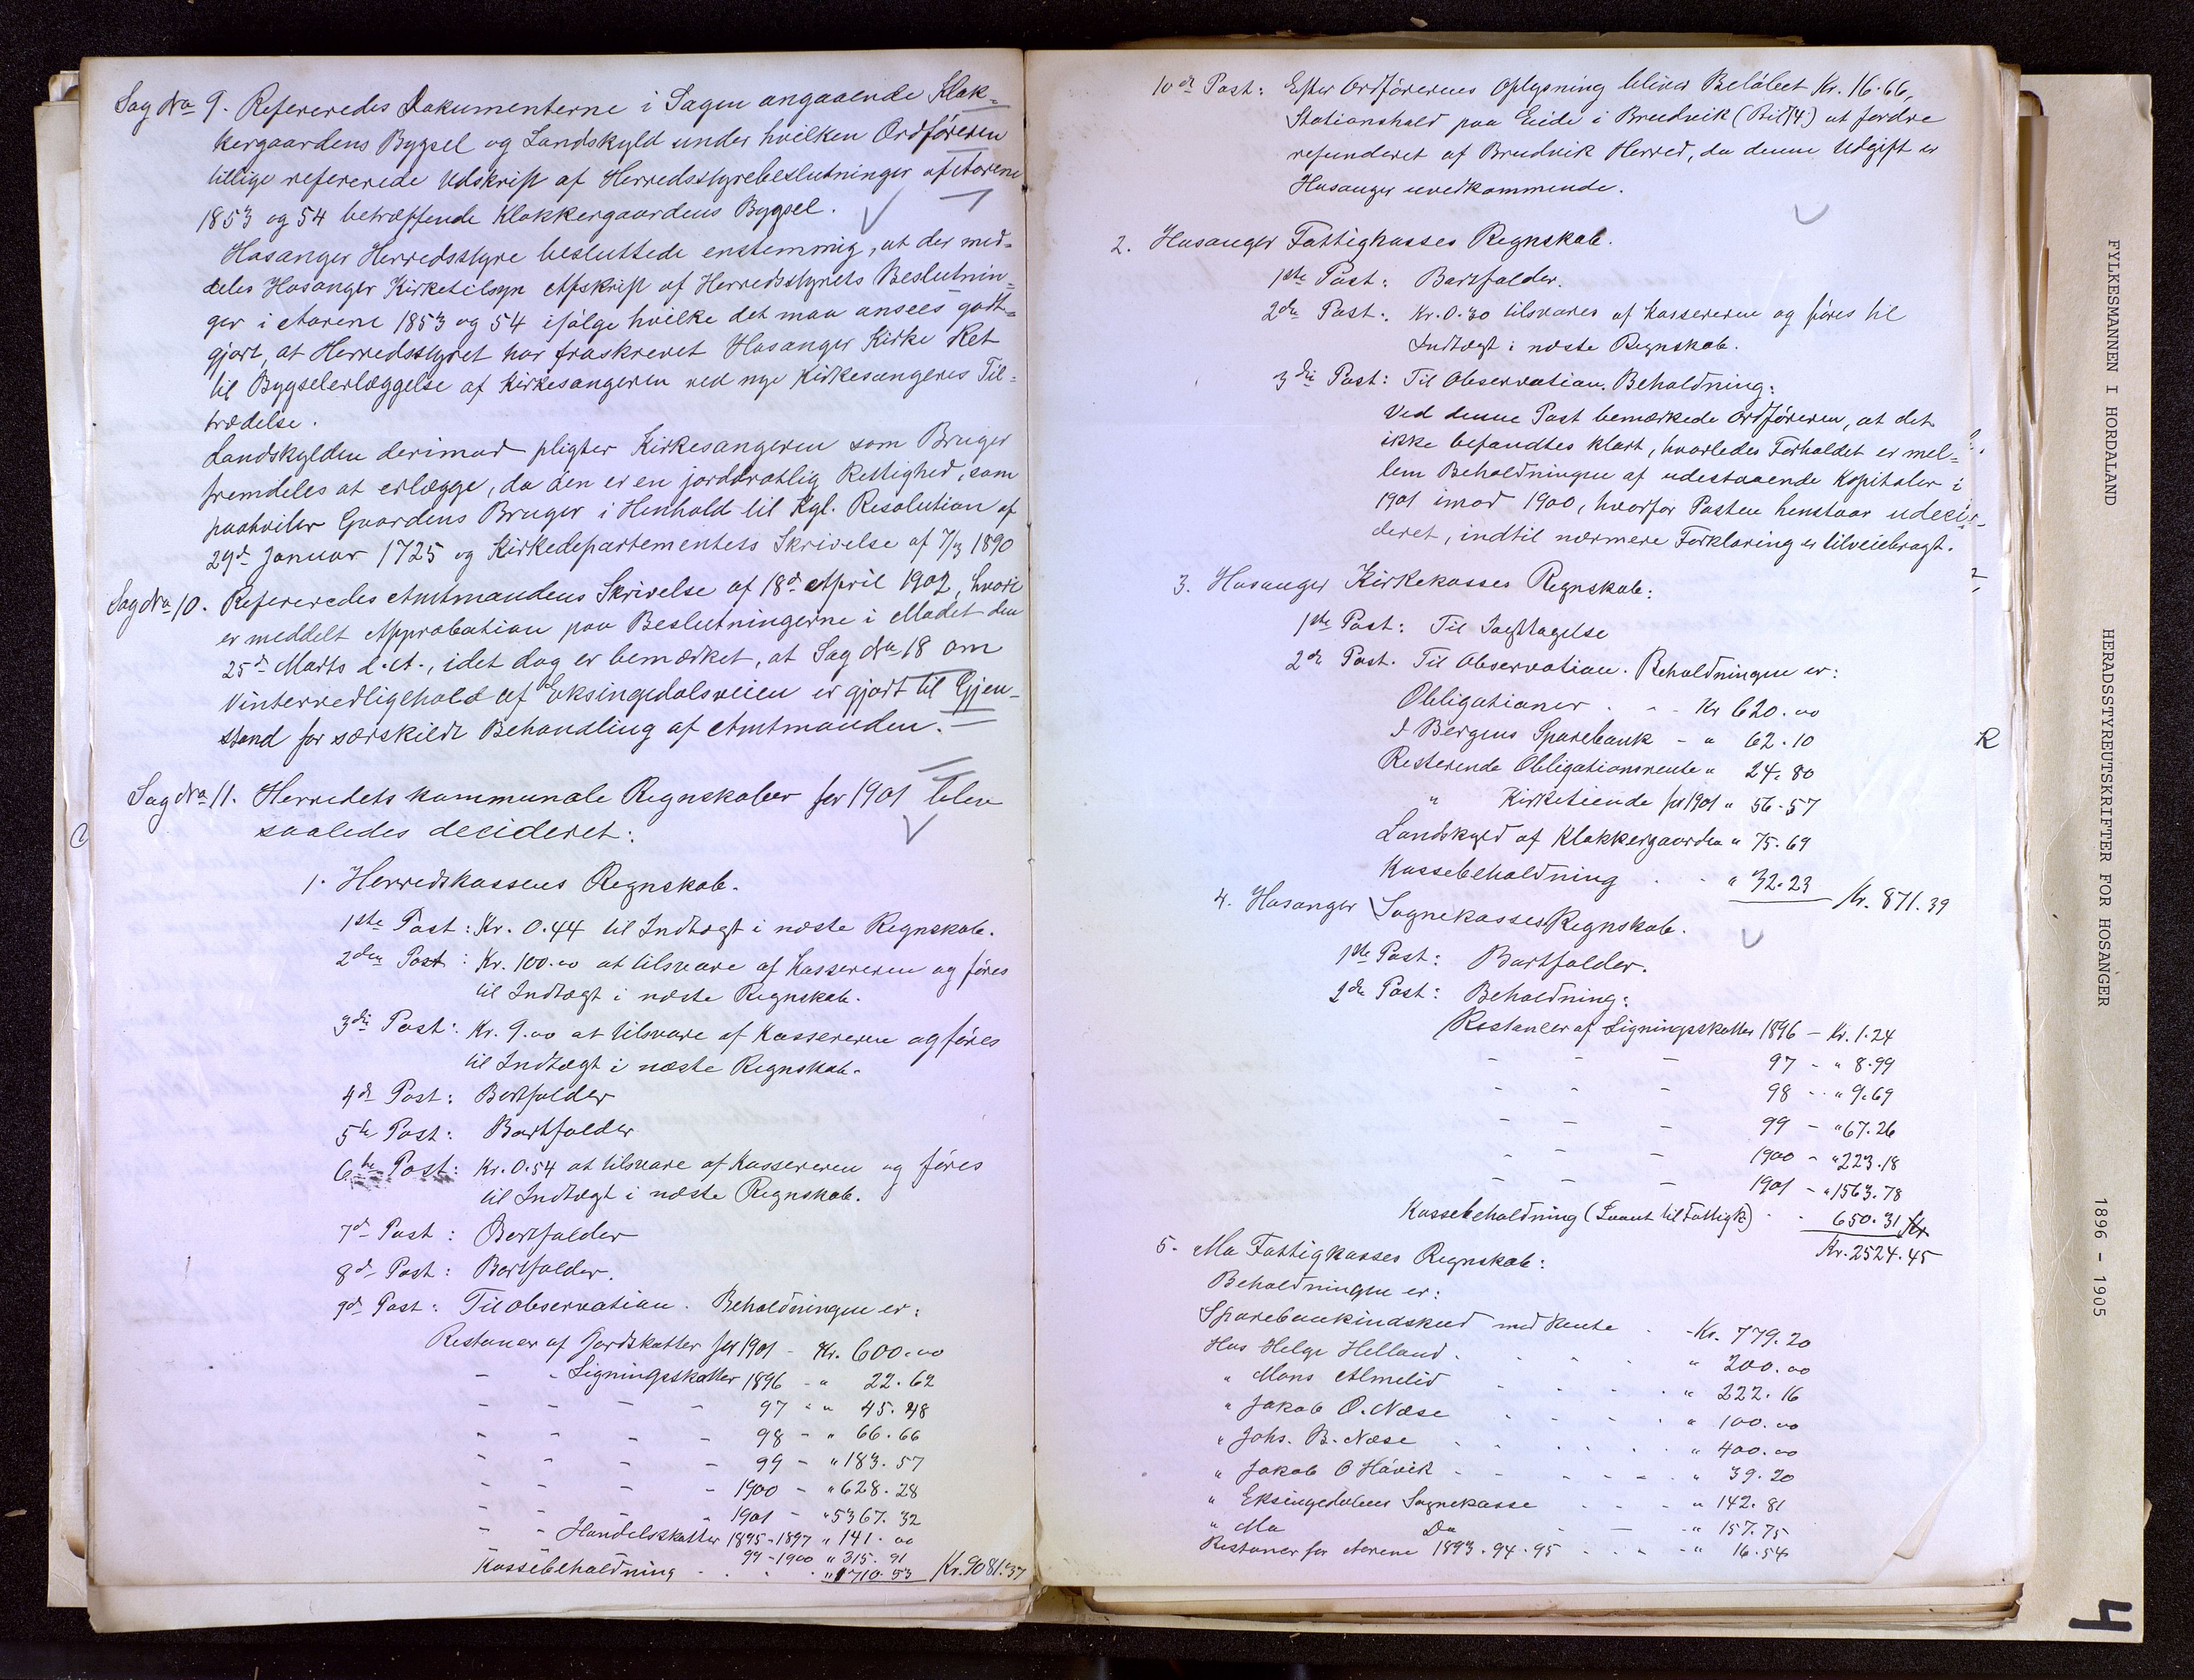 Sag No 9. Refereredes Dokumenterne i Sagen angaaende Klok-
kergaardens Bygsel og Landskyld under hvilken Ordføreren
tillige refererede Udskrift af Herredsstyrebeslutninger af Aarene
1853 og 54 betræffende Klokkergaardens Bygsel.
Hosanger Herredsstyre besluttede enstemmig, at der med-
deles Hosanger Kirketilsyn Afskrift af Herredsstyrets Beslutnin-
ger i Aarene 1853 og 54 ifølge hvilke det maa ansees godt-
gjort, at Herredsstyret har fraskrevet Hosanger Kirke Ret
til Bygselerlæggelse af Kirkesangeren ved nye Kirkesangeres Til-
trædelse.
Landskylden derimod pligter Kirkesangeren som Bruger
fremdeles at erlægge, da den er en jorddrotlig Rettighed, som
paahviler Gaardens Bruger i Henhold til Kgl. Resolution af
29de Januar 1725 og Kirkedepartementets Skrivelse af 7/3 1890
Sag No 10. Refereredes Amtmandens Skrivelse af 18de April 1902, hvori
er meddelt Approbation paa Beslutningerne i Mødet den
25de Marts d. A., idet dog er bemærket, at Sag No 18 om
Vintervedligehold af Eksingedalsveien er gjort til Gjen-
stand for særskildt Behandling af Amtmanden.
Sag No 11. Herredets kommunale Regnskaber for 1901 blev
saaledes decideret:
1. Herredskassens Regnskab.
1ste Post: Kr. 0.44 til Indtægt i næste Regnskab.
2den Post: Kr. 100.00 at tilsvare af Kassereren og føres
til Indtægt i næste Regnskab.
3die Post: Kr. 9.00 at tilsvare af Kassereren og føres
til Indtægt i næste Regnskab.
4de Post: Bortfalder
5te Post: Bortfalder
6te Post: Kr. 0.54 at tilsvare af Kassereren og føres
til Indtægt i næste Regnskab.
7de Post: Bortfalder
8de Post: Bortfalder.
9de Post: Til Observation. Beholdningen er:
Restancer af Jordskatter for 1901 - Kr. 600.00
- - Ligningsskatter 1896 - " 22.62
- - - - 97 - " 45.48
- - - - 98 - " 66.66
- - - - 99 - " 183.57
- - - - 1900 - " 628.28
- - - 1901 - " 5367.32
- - Handelsskatter 1895-1897 " 141.00
99-1900 " 315.91
Kassebeholdning . . . " 1710.53 Kr. 9081.37
10de Post: Efter Ordførerens Oplysning bliver Beløbet Kr. 16.66,
Stationshold paa Eide i Bruvik (Bil 14) at fordre
refunderet af Bruvik Herred, da denne Udgift er
Hosanger uvedkommende.
2. Hosanger Fattigkasses Regnskab.
1ste Post: Bortfalder.
2den Post: Kr. 0.30 tilsvares af Kassereren og føres til
Indtægt i næste Regnskab.
3die Post: Til Observation. Beholdning:
Ved denne Post bemærkede Ordføreren, at det
ikke befandtes klart, hvorledes Forholdet er mel-
lem Beholdningen af udestaaende Kapitaler i
1901 imod 1900, hvorfor Posten henstaar udeci-
deret, indtil nærmere Forklaring er tilveiebragt.
3. Hosanger Kirkekasses Regnskab:
1ste Post: Til Iagttagelse
2den Post. Til Observation. Beholdningen er:
Obligationer . - - Kr 620.00
I Bergens Sparebank - " 62.10
R
Resterende Obligationsrente " 24.80
" Kirketiende for 1901 " 56.57
Landskyld af Klokkergaarden " 75.69
Kassebeholdning . . " 32.23 Kr. 871.39
4. Hosanger Sognekasses Regnskab.
1ste Post: Bortfalder.
2den Post: Beholdning:
Restancer af Ligningsskatter 1896 - Kr. 1.24
- - - 97 - " 8.99
- - - 98 - " 9.69
- - - 99 - " 67.26
- - - 1900 - " 223.18
- - - 1901 - " 1563.78
Kassebeholdning (Laant til Fattigk) . . 650.31
Kr. 2524.45
5. Mo Fattigkasses Regnskab:
Beholdningen er:
Sparebankindskud med Rente . - Kr. 779.20
Hos Helge Helland . . . . " 200.00
" Mons Almelid . . . . " 222.16
" Jakob O. Næse . . . . " 100.00
" Johs. B. Næse . . . . " 400.00
" Jakob O Håvik - - - - " 39.20
" Eksingedalens Sognekasse - - - " 142.81
" Mo Do - - - " 157.75
Restancer for Aarene 1893.94.95 - . - - " 16.54
FYLKESMANNEN I HORDALAND
HERADSSTYREUTSKRIFTER FOR HOSANGER
1896 - 1905
4